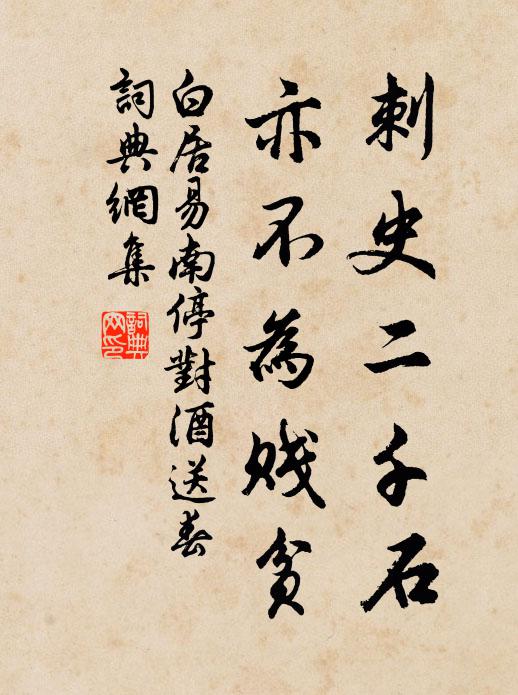 刺史二千石
亦不為賤貧
白居易南停對酒送春
詞典網集
詞典
网印